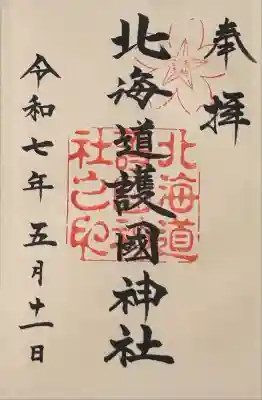 奉拝
北海道護國神社
北海道護國神社之印
令和七年五月十一日